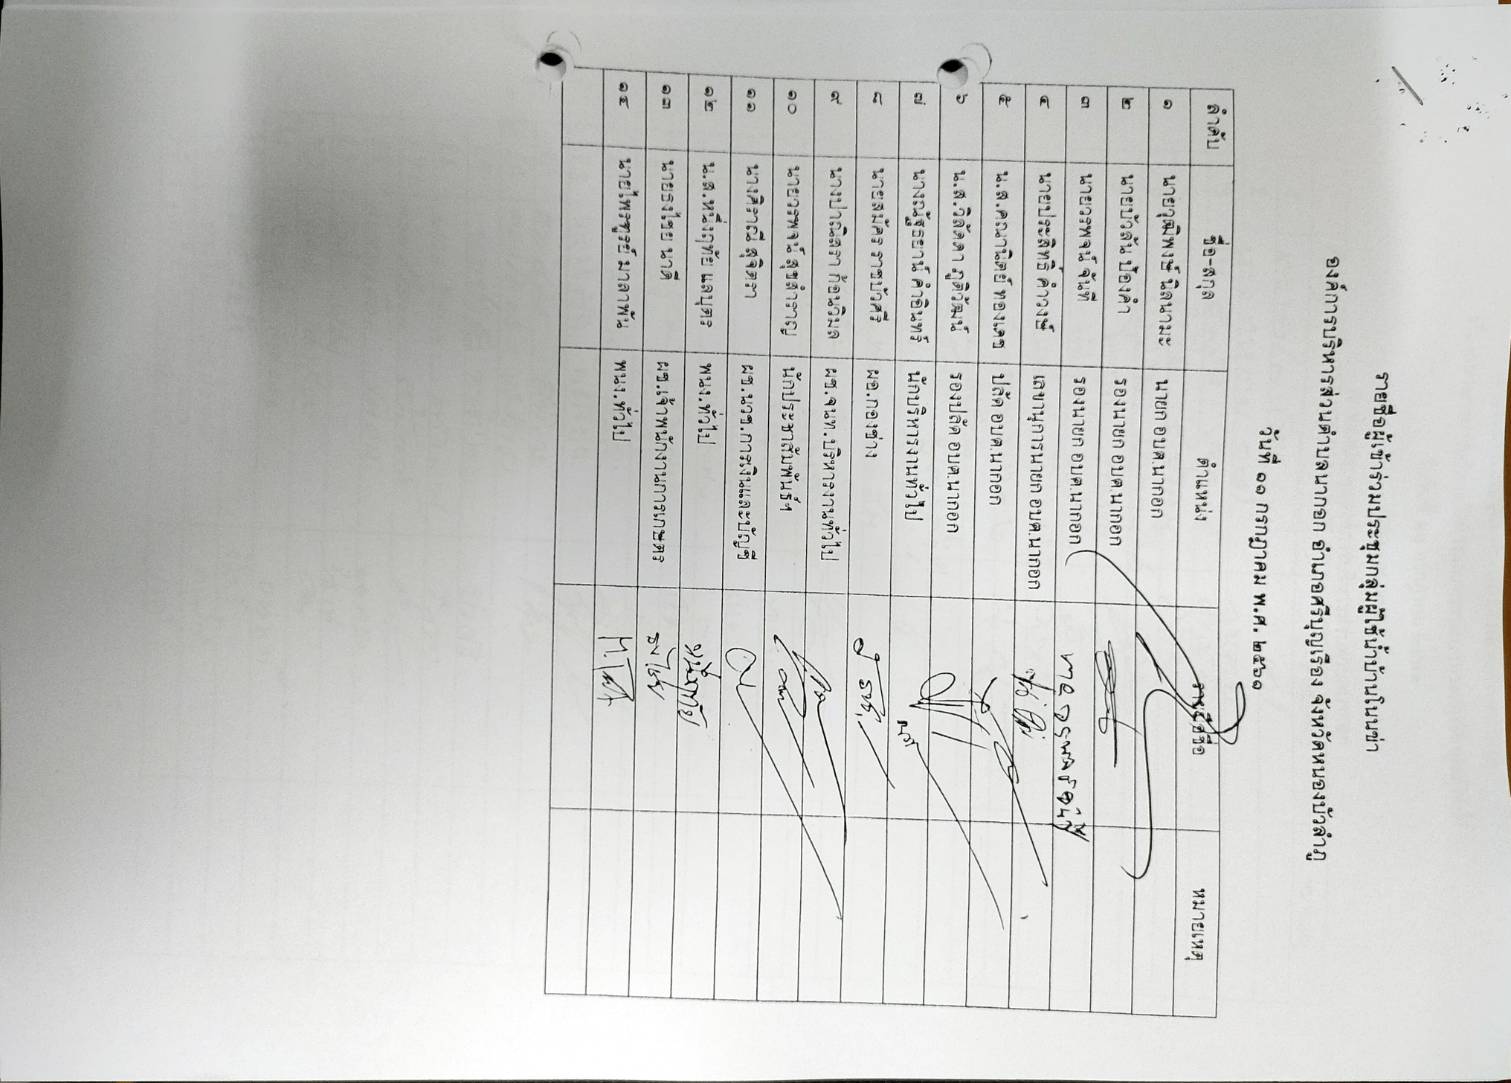 รายชื่อผู้เข้าร่วมประชุมกลุ่มผู้ใช้น้ำบ้านโนนข่า
องค์การบริหารส่วนตำบลนากอก อำเภอศรีบุญเรือง จังหวัดหนองบัวลำภู
วันที่ ๑๑ กรกฎาคม พ.ศ. ๒๕๖๑
ลำดับ ชื่อ-สกุล ตำแหน่ง ลายมือชื่อ หมายเหตุ
๑ นายวุฒิพงษ์ นิลนามะ นายก อบต.นากอก
๒ นายบัวลัน ป้องคำ รองนายก อบต.นากอก
๓ นายวรพจน์ จันที รองนายก อบต.นากอก
๔ นายประสิทธิ์ คำวงษ์ เลขานุการนายก อบต.นากอก
๕ น.ส.คณานิตย์ ทองเลข ปลัด อบต.นากอก
๖ น.ส.วิลัดดา ภูติวัฒน์ รองปลัด อบต.นากอก
๗ นางณัฐธยาน์ คำอินทร์ นักบริหารงานทั่วไป
๘ นายสมัคร ราชบัวศรี ผอ.กองช่าง
๙ นางปาณิสรา ก้อนวิมล ผช.จนท.บริหารงานทั่วไป
๑๐ นายวรพจน์ สุขสำราญ นักประชาสัมพันธ์ฯ
๑๑ นางศิราณี สุจิตรา ผช.นวช.การเงินและบัญชี
๑๒ น.ส.หนึ่งฤทัย แลบุตร พนง.ทั่วไป
๑๓ นายธงไชย นาดี ผช.เจ้าพนักงานการเกษตร
๑๔ นายไพรฑูรย์ มาลาพัน พนง.ทั่วไป